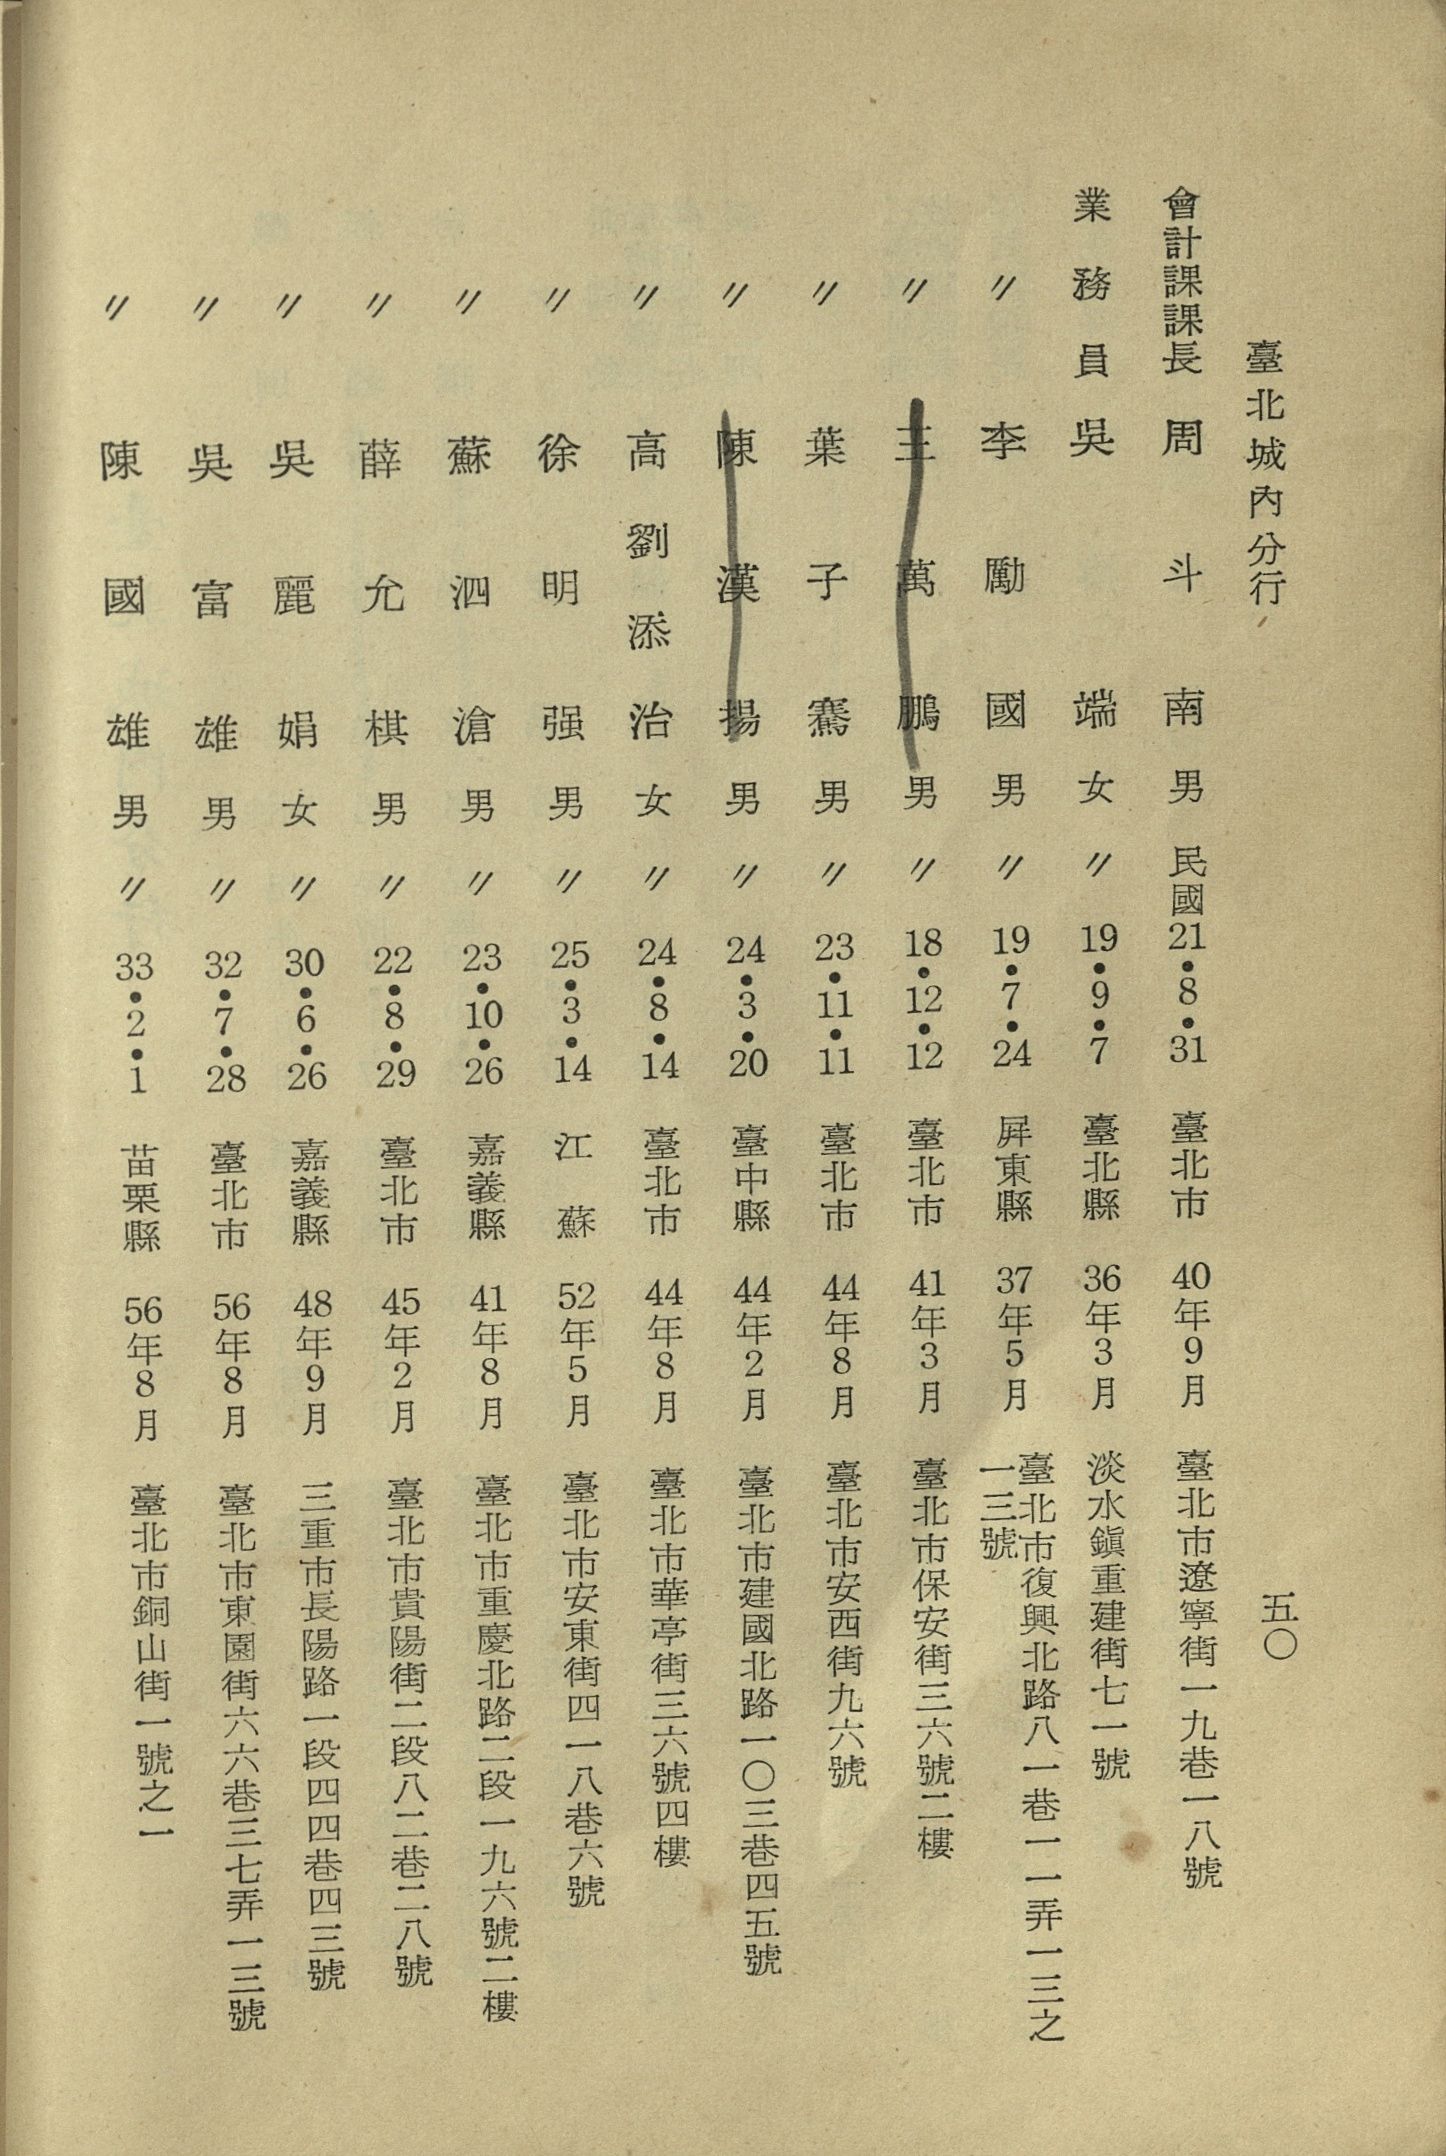 臺北城內分行
五〇
會計課課長 周斗南 男 民國 21•8•31 臺北市 40年9月 臺北市遼寧街一九巷一八號
業務員 吳端 女 〃 19•9•7 臺北縣 36年3月 淡水鎭重建街七一號
〃 李勵國 男 〃 19•7•24 屛東縣 37年5月 臺北市復興北路八一巷一一弄一三之
一三號
〃 王萬鵬 男 〃 18•12•12 臺北市 41年3月 臺北市保安街三六號二樓
〃 葉子騫 男 〃 23•11•11 臺北市 44年8月 臺北市安西街九六號
〃 陳漢揚 男 〃 24•3•20 臺中縣 44年2月 臺北市建國北路一〇三巷四五號
〃 高劉添治 女 〃 24•8•14 臺北市 44年8月 臺北市華亭街三六號四樓
〃 徐明强 男 〃 25•3•14 江蘇 52年5月 臺北市安東街四一八巷六號
〃 蘇泗滄 男 〃 23•10•26 嘉義縣 41年8月 臺北市重慶北路二段一九六號二樓
〃 薛允棋 男 〃 22•8•29 臺北市 45年2月 臺北市貴陽街二段八二巷二八號
〃 吳麗娟 女 〃 30•6•26 嘉義縣 48年9月 三重市長陽路一段四四巷四三號
〃 吳富雄 男 〃 32•7•28 臺北市 56年8月 臺北市東園街六六巷三七弄一三號
〃 陳國雄 男 〃 33•2•1 苗栗縣 56年8月 臺北市銅山街一號之一